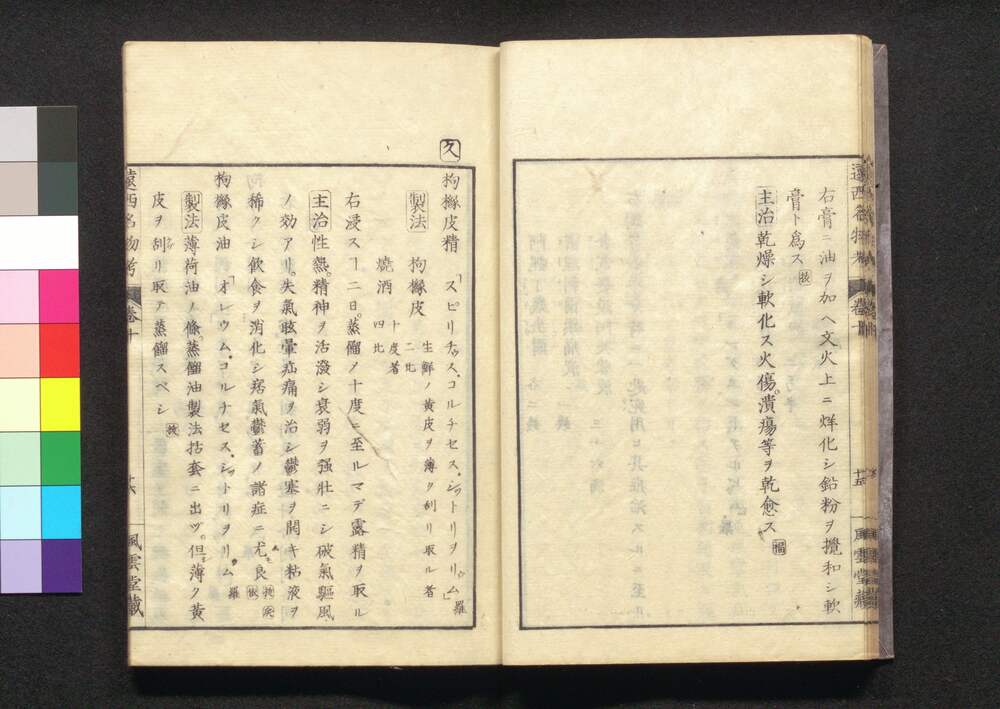 右膏ニ油ヲ加ヘ文火上ニ烊化シ鉛粉ヲ攪和シ軟
膏ト爲ス
主治乾燥シ軟化ス火傷潰瘍等ヲ乾愈ス
遠西名物考
卷十
十五
風雲堂藏
久
枸櫞皮精「スピリチュス、コルチセス、シットリヲリュム」羅
製法 枸櫞皮 生鮮ノ黄皮ヲ薄ク刮リ取ル者 二比
燒酒 十度者 四比
右浸スヿ二日蒸餾ノ十度ニ至ルマデ露精ヲ取ル
主治性熱精神ヲ活潑シ衰弱ヲ强壯ニシ破氣驅風
ノ効アリ失氣眩暈疝痛ヲ治シ鬱塞ヲ開キ粘液ヲ
稀クシ飲食ヲ消化シ痞氣鬱蓄ノ諸症ニ尤良
枸櫞皮油「オレウム、コルチセス、シットリヲリュム 羅
製法薄荷油ノ條蒸餾油製法括套ニ出ヅ但薄ク黄
皮ヲ刮リ取テ蒸餾スベシ
遠西名物考
卷十
十六
風雲堂藏